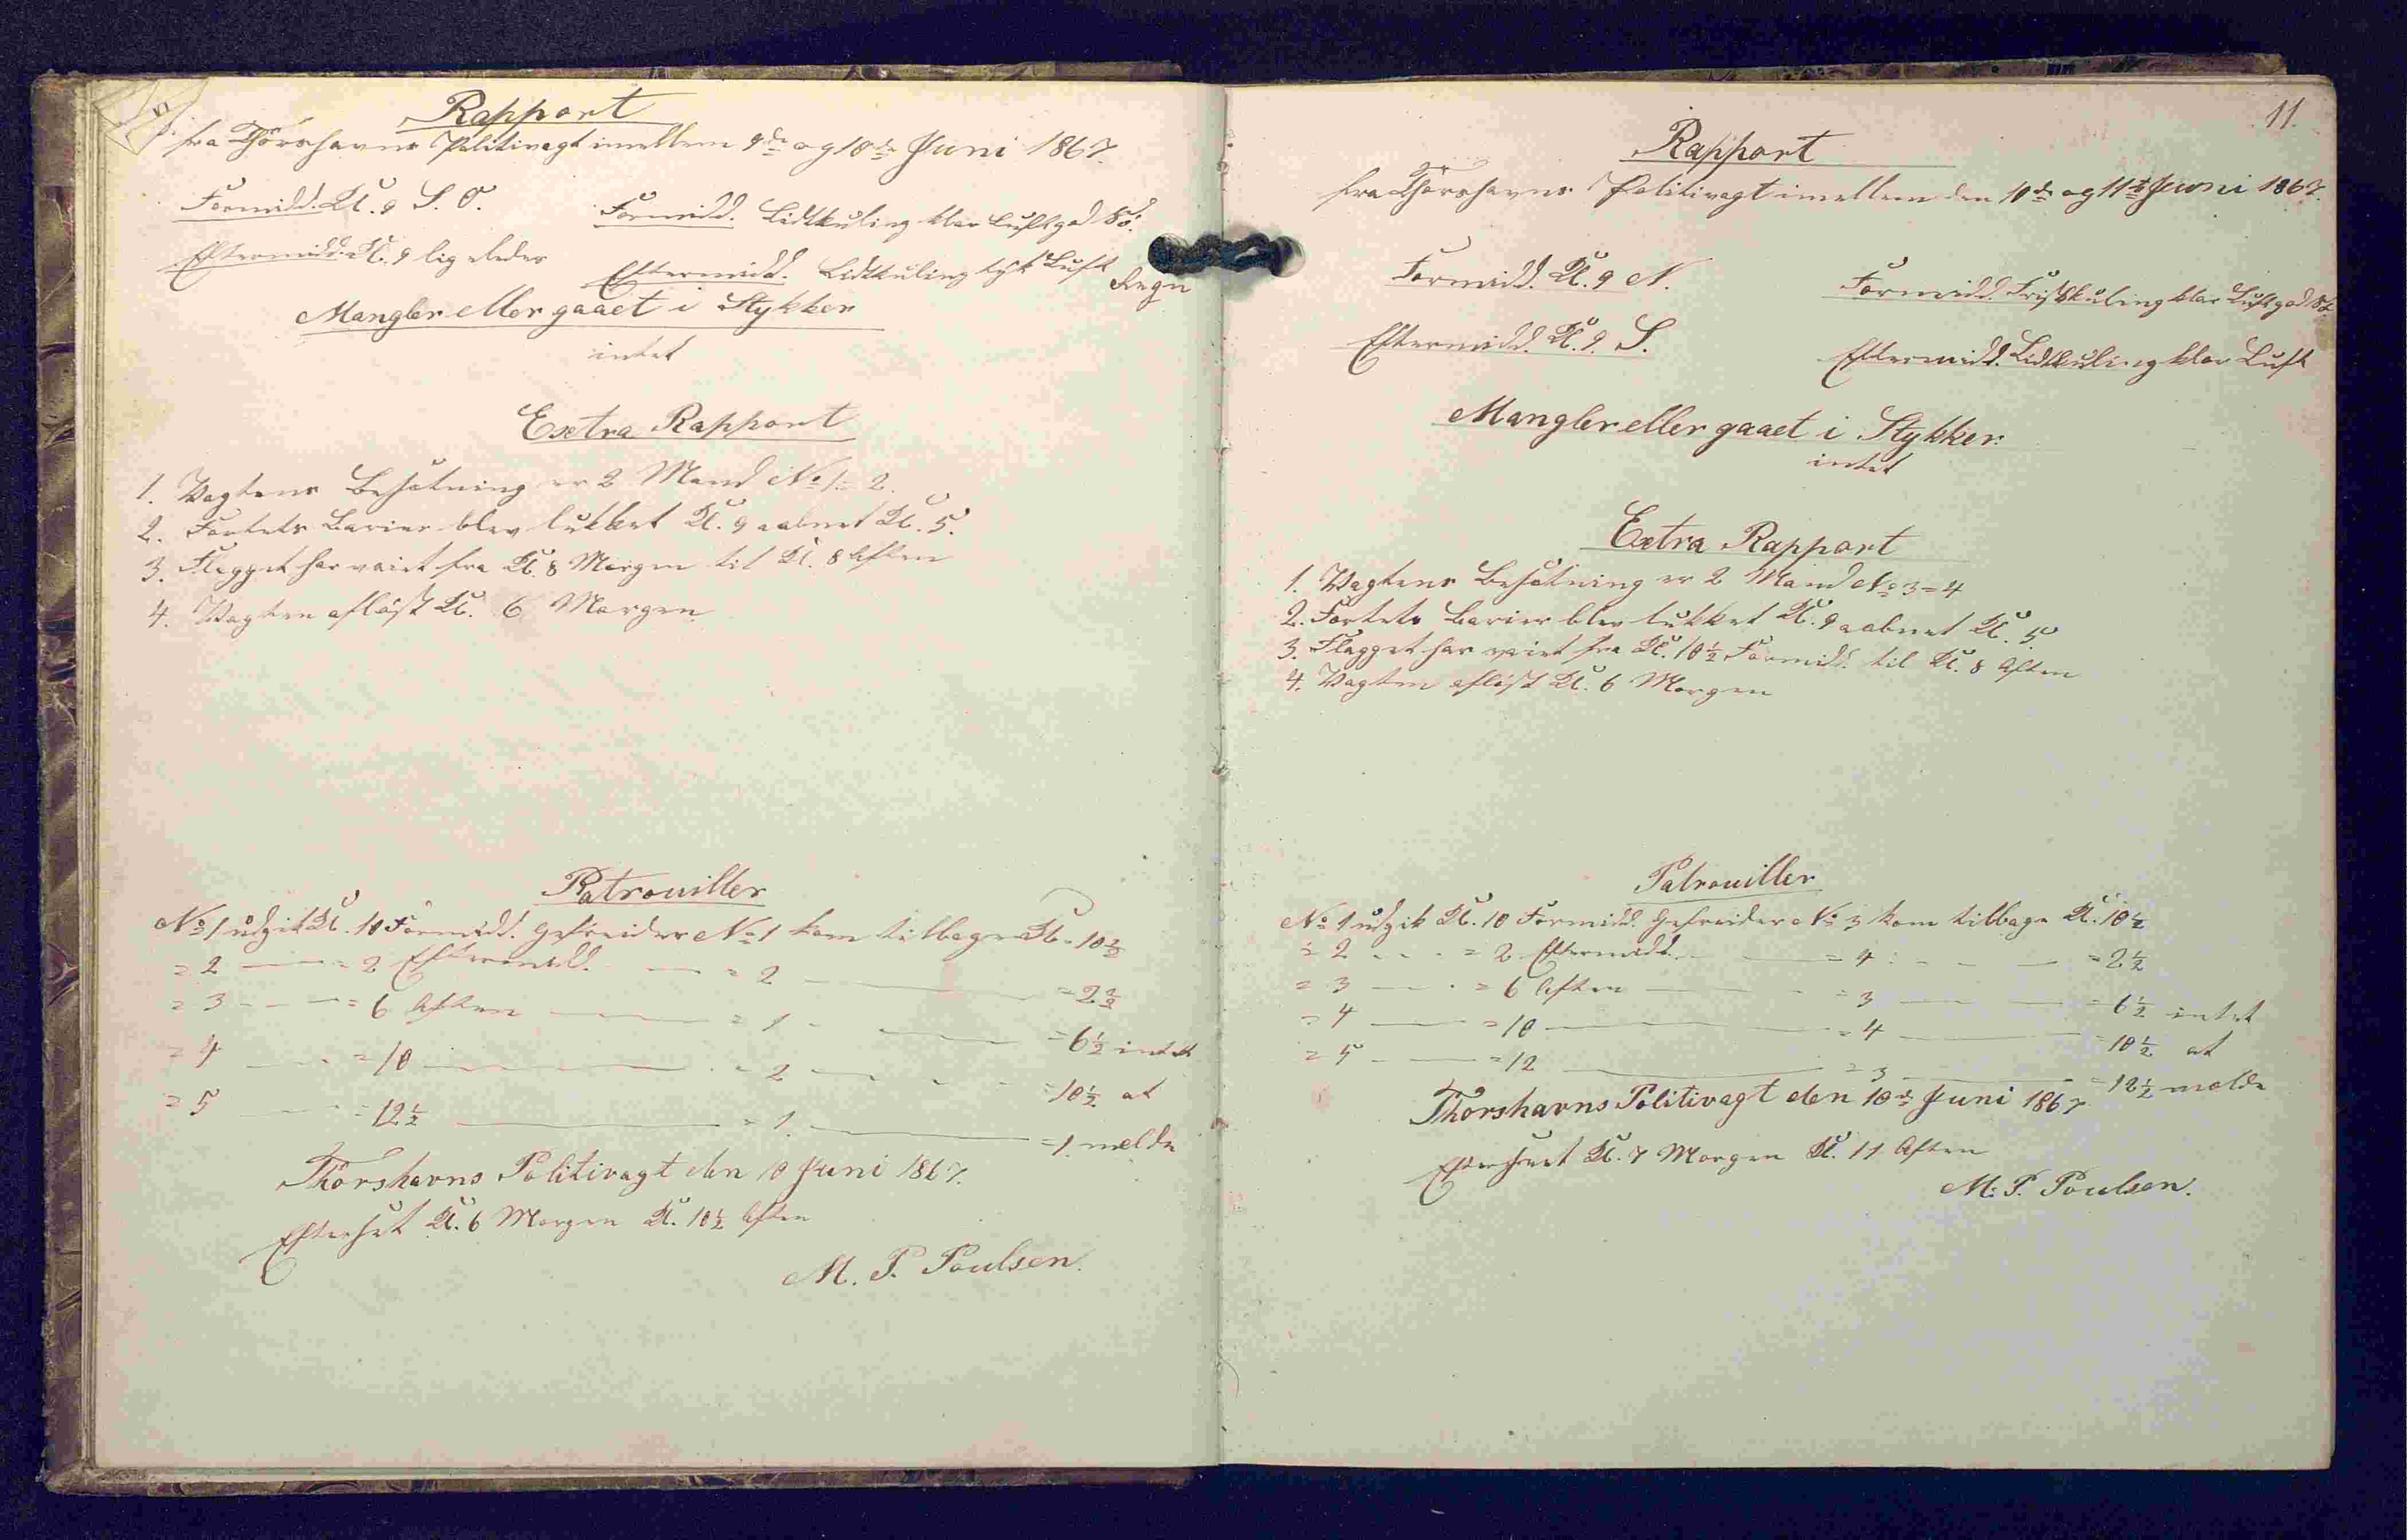 Rapport
fra Thorshavns Politivagt imellem 9de og 10de Juni 1867.
Formidd. Kl. 9 S. O.
Formidd. Lidtkuling klar Luft god Sø.
Eftermidd. Kl. 9 ligeledes
Eftermidd. Lidtkuling tyk Luft
Regn
Mangler eller gaaet i Stykker
intet
Extra Rapport
1. Vagtens Besætning er 2 Mand No 1 = 2.
2. Fortets Barier blev lukket Kl. 9 aabnet Kl. 5.
3. Flagget har vaiet fra Kl. 8 Morgen til Kl. 8 Aften
4. Vagten afløst Kl. 6 Morgen
Patrouiller
No 1 udgik Kl. 10 Formidd. Gefreider No 1 kom tilbage Kl. 10 1/2
= 2 — = 2 Eftermidd. — = 2 — = 2 1/2
= 3 — = 6 Aften — = 1 — = 6 1/2 intet
= 4 — = 10 — = 2 — = 10 1/2 at
= 5 — = 12 1/2 — = 1. — = 1. melde
Thorshavns Politivagt den 10 Juni 1867.
Efterseet Kl. 6 Morgen Kl. 10 1/2 Aften
M. P. Poulsen.
11.
Rapport
fra Thorshavns Politivagt imellem den 10de og 11te Juni 1867.
Formidd. Kl. 9 N.
Formidd. Friskkuling klar Luft god Sø.
Eftermidd. Kl. 9. S.
Eftermidd. Lidtkuling klar Luft
Mangler eller gaaet i Stykker
intet
Extra Rapport
1. Vagtens Besætning er 2 Mand No 3 = 4
2. Fortets Barier blev lukket Kl. 9 aabnet Kl. 5.
3. Flagget har vaiet fra Kl. 10 1/2 Formidd. til Kl. 8 Aften
4. Vagten afløst Kl. 6 Morgen
Patrouiller
No 1 udgik Kl. 10 Formidd. Gefreider No 3 kom tilbage Kl. 10 1/2
= 2 — = 2 Eftermidd. — = 4 — = 2 1/2
= 3 — = 6 Aften — = 3 — = 6 1/2 intet
= 4 — = 10 — = 4 — = 10 1/2 at
= 5 — = 12 — = 3 — = 12 1/2 melde
Thorshavns Politivagt den 10de Juni 1867
Efterseet Kl. 7 Morgen Kl. 11 Aften
M. P. Poulsen.